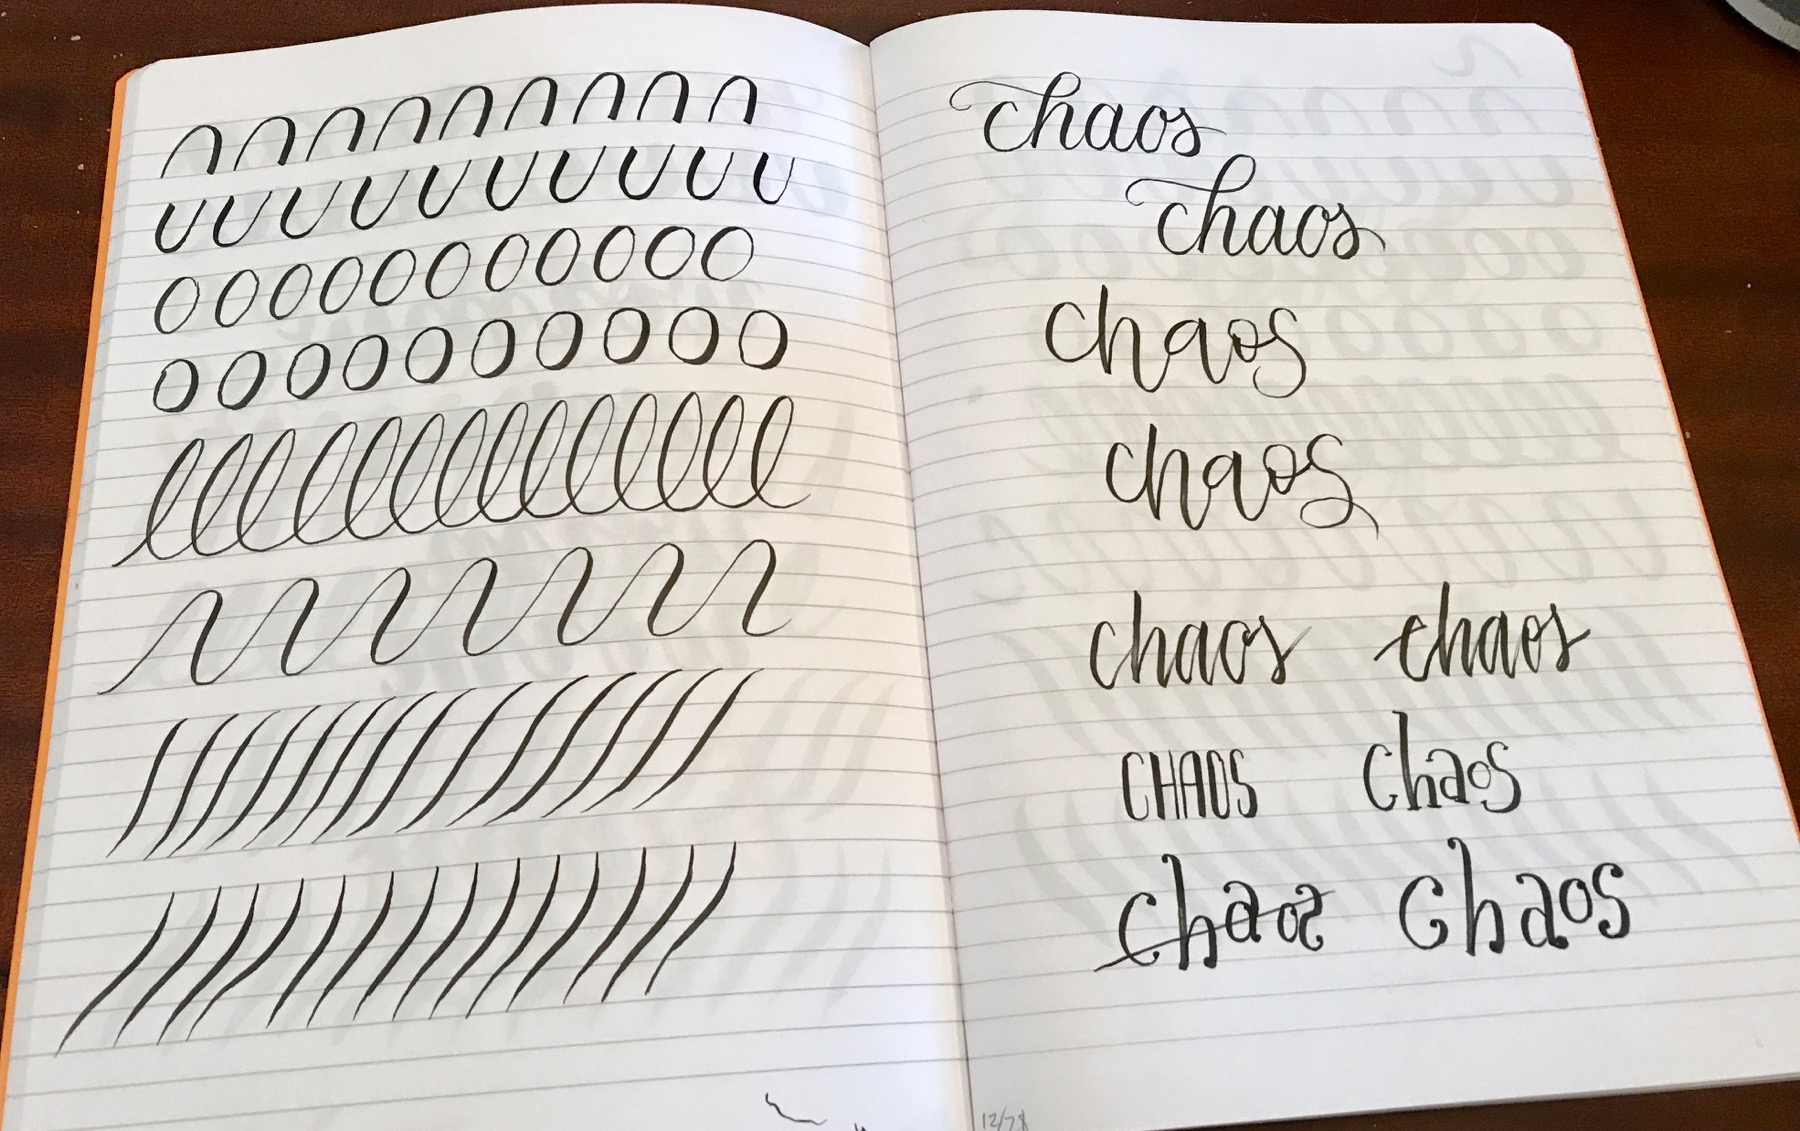 chaos
chaos
chaos
chaos
chaos chaos
CHAOS chaos
chaos chaos
12/28